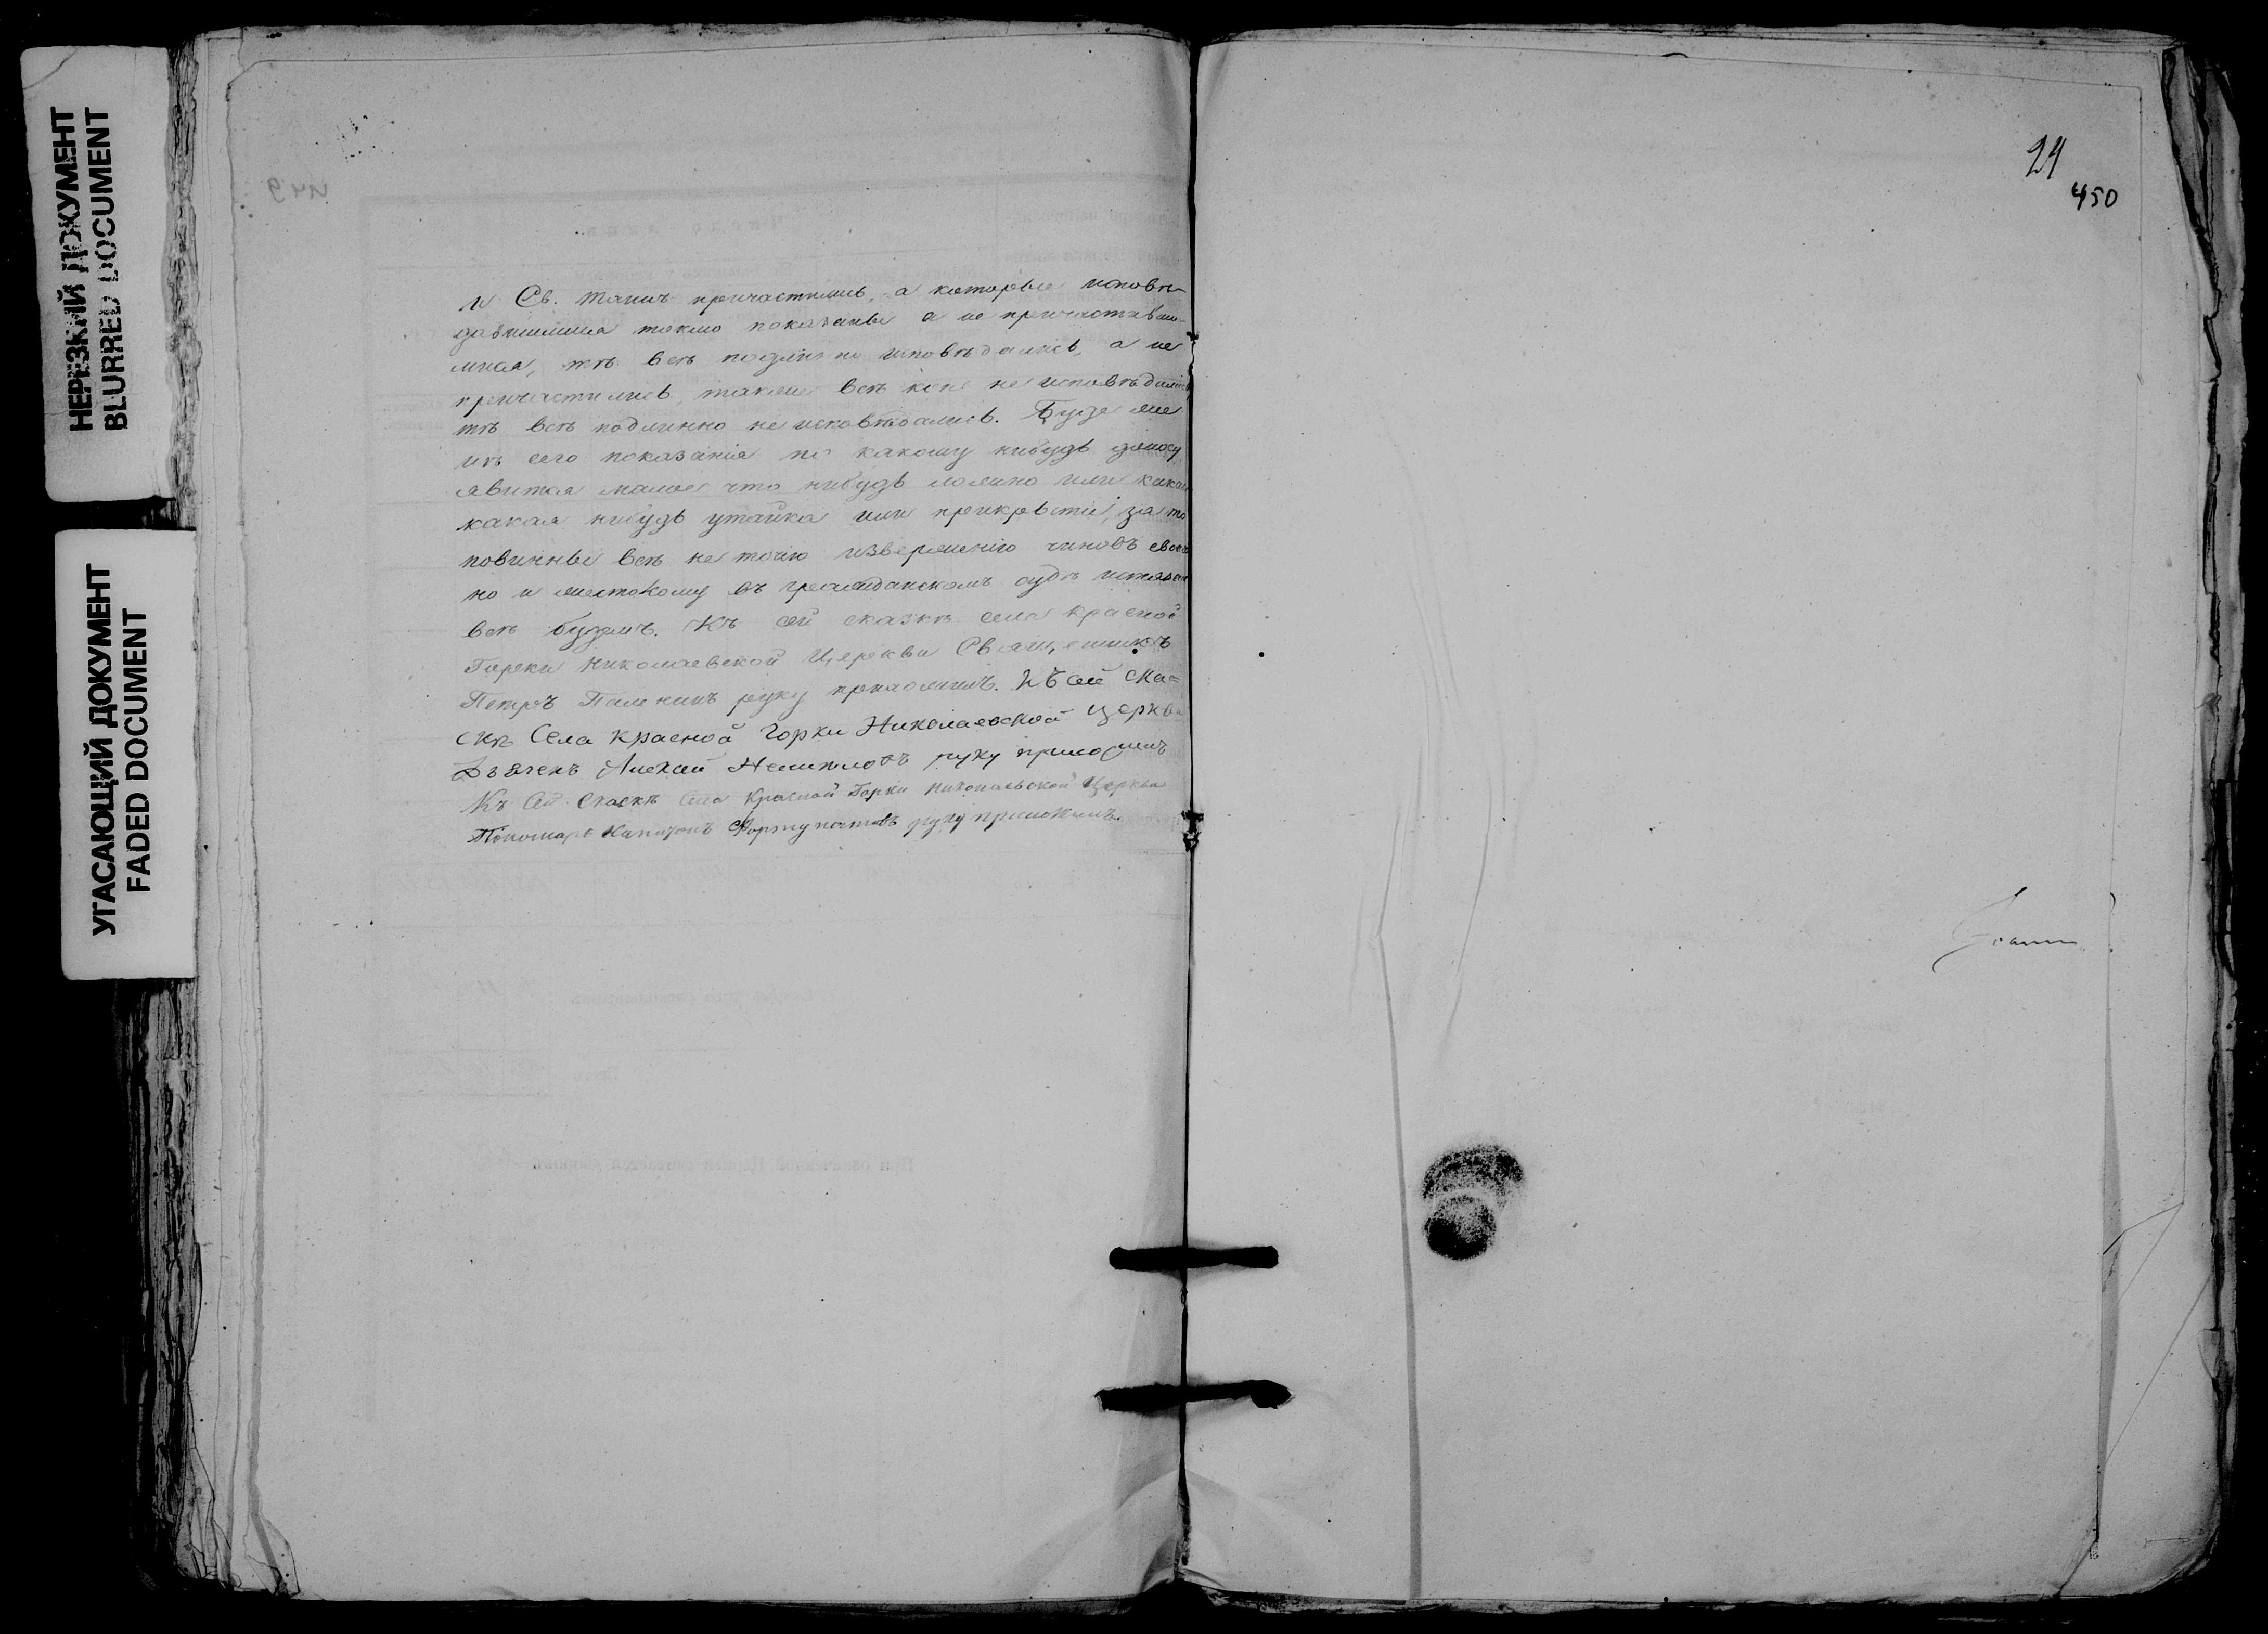 НЕРЕЗКИЙ ДОКУМЕНТ
BLURRED DOCUMENT
УГАСАЮЩИЙ ДОКУМЕНТ
FADED DOCUMENT
и Св. Таинъ причастились, а которые исповѣ-
давшимися токмо показаны а не причастивши-
мися, тѣ всѣ подлинно исповѣдались, а не
причастились, также всѣ кои не исповѣдались
тѣ всѣ подлинно не исповѣдались. Буде же
изъ сего показанія по какому нибудь доносу
явится малое что нибудь ложно или какая
какая нибудь утайка или прикрытіе, за то
повинны всѣ не точію изверженію чиновъ своихъ
но и жестокому въ гражданскомъ судѣ истязанію
всѣ будемъ. Къ сей сказкѣ села Красной
Горки Николаевской Церкви Священникъ
Петръ руку приложилъ. Къ сей ска=
скѣ Села Красной Горки Николаевской Церкви
Дьячекъ Алексѣй руку приложилъ
Къ Сей Скаскѣ Села Красной Горки Николаевской Церкви
Пономарь Капитонъ Фортунатовъ руку приложилъ.
24
450